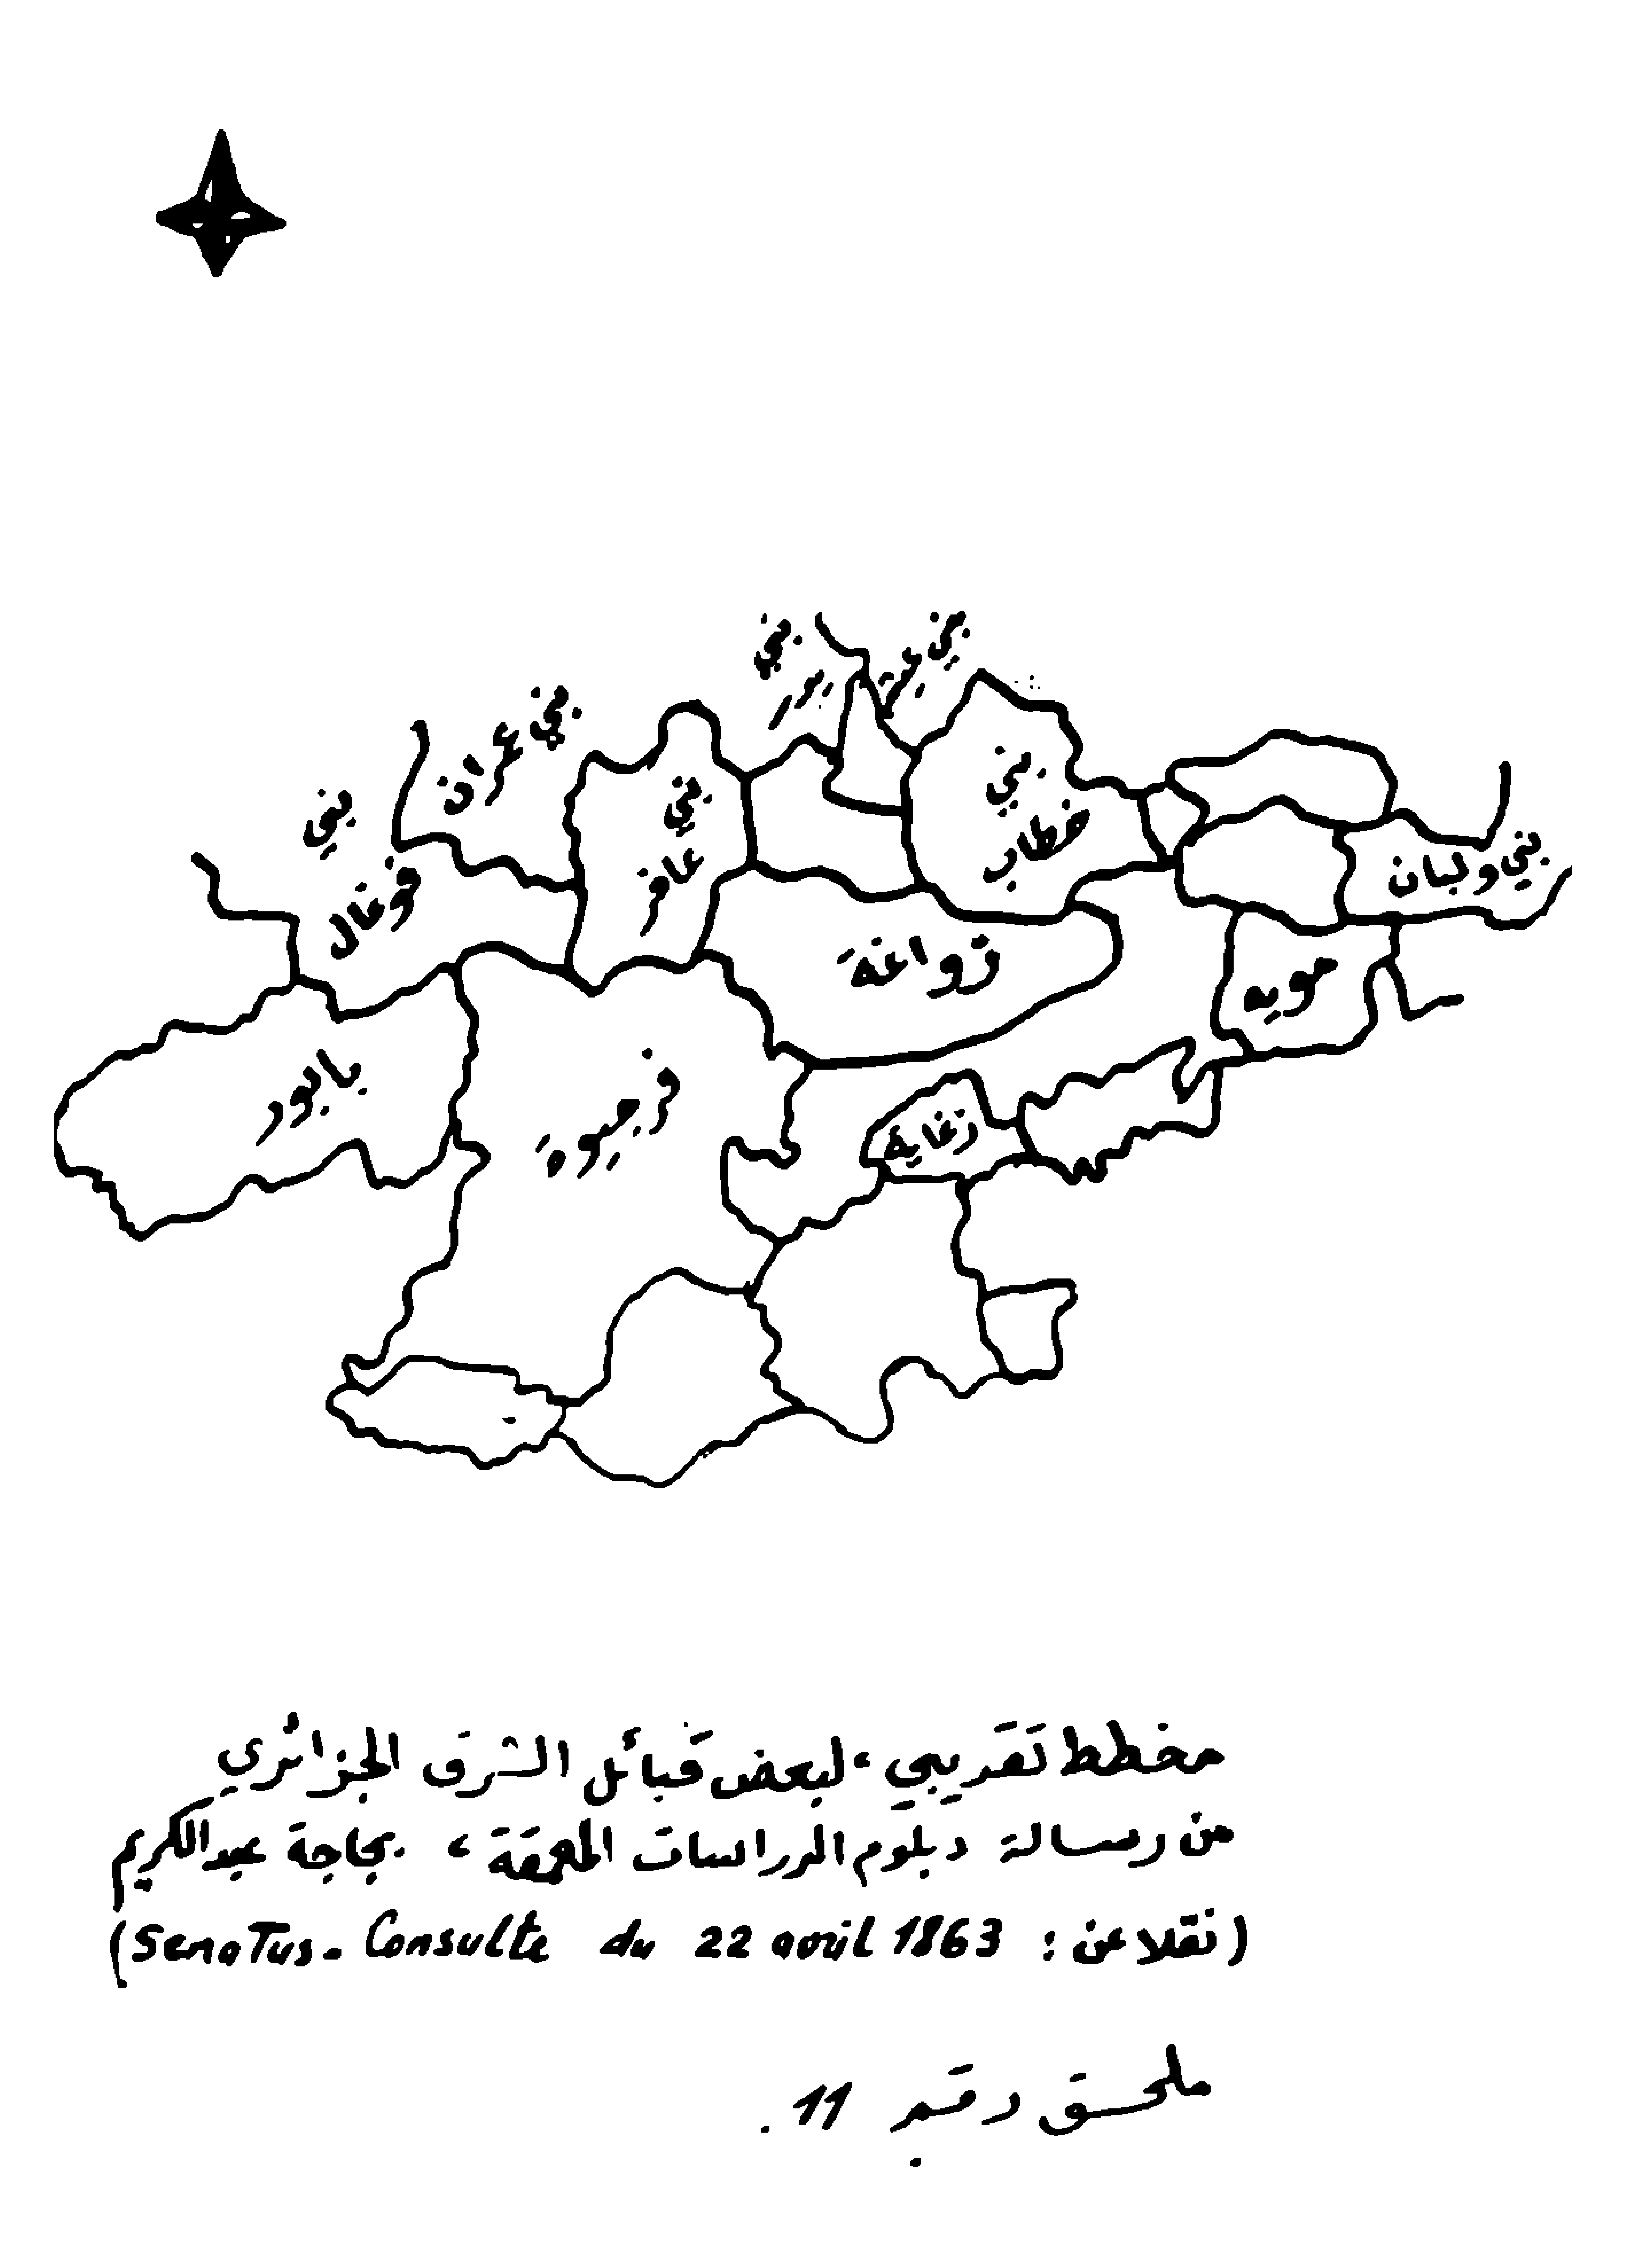 بني
بني
بني عمران
بني
بني
بني
فوغال
عافر
خطاب
بني ولبان
زواغة
مويه
بابور
فرجيوة
زغاية
مخطط تقريبي، لبعض قبائل الشرق الجزائري
من رسالة دبلوم الدراسات المعمقة، بجاجة عبد الكريم
(نقلا عن : Senatus-Consulte du 22 avril 1863)
ملحق رقم 11.